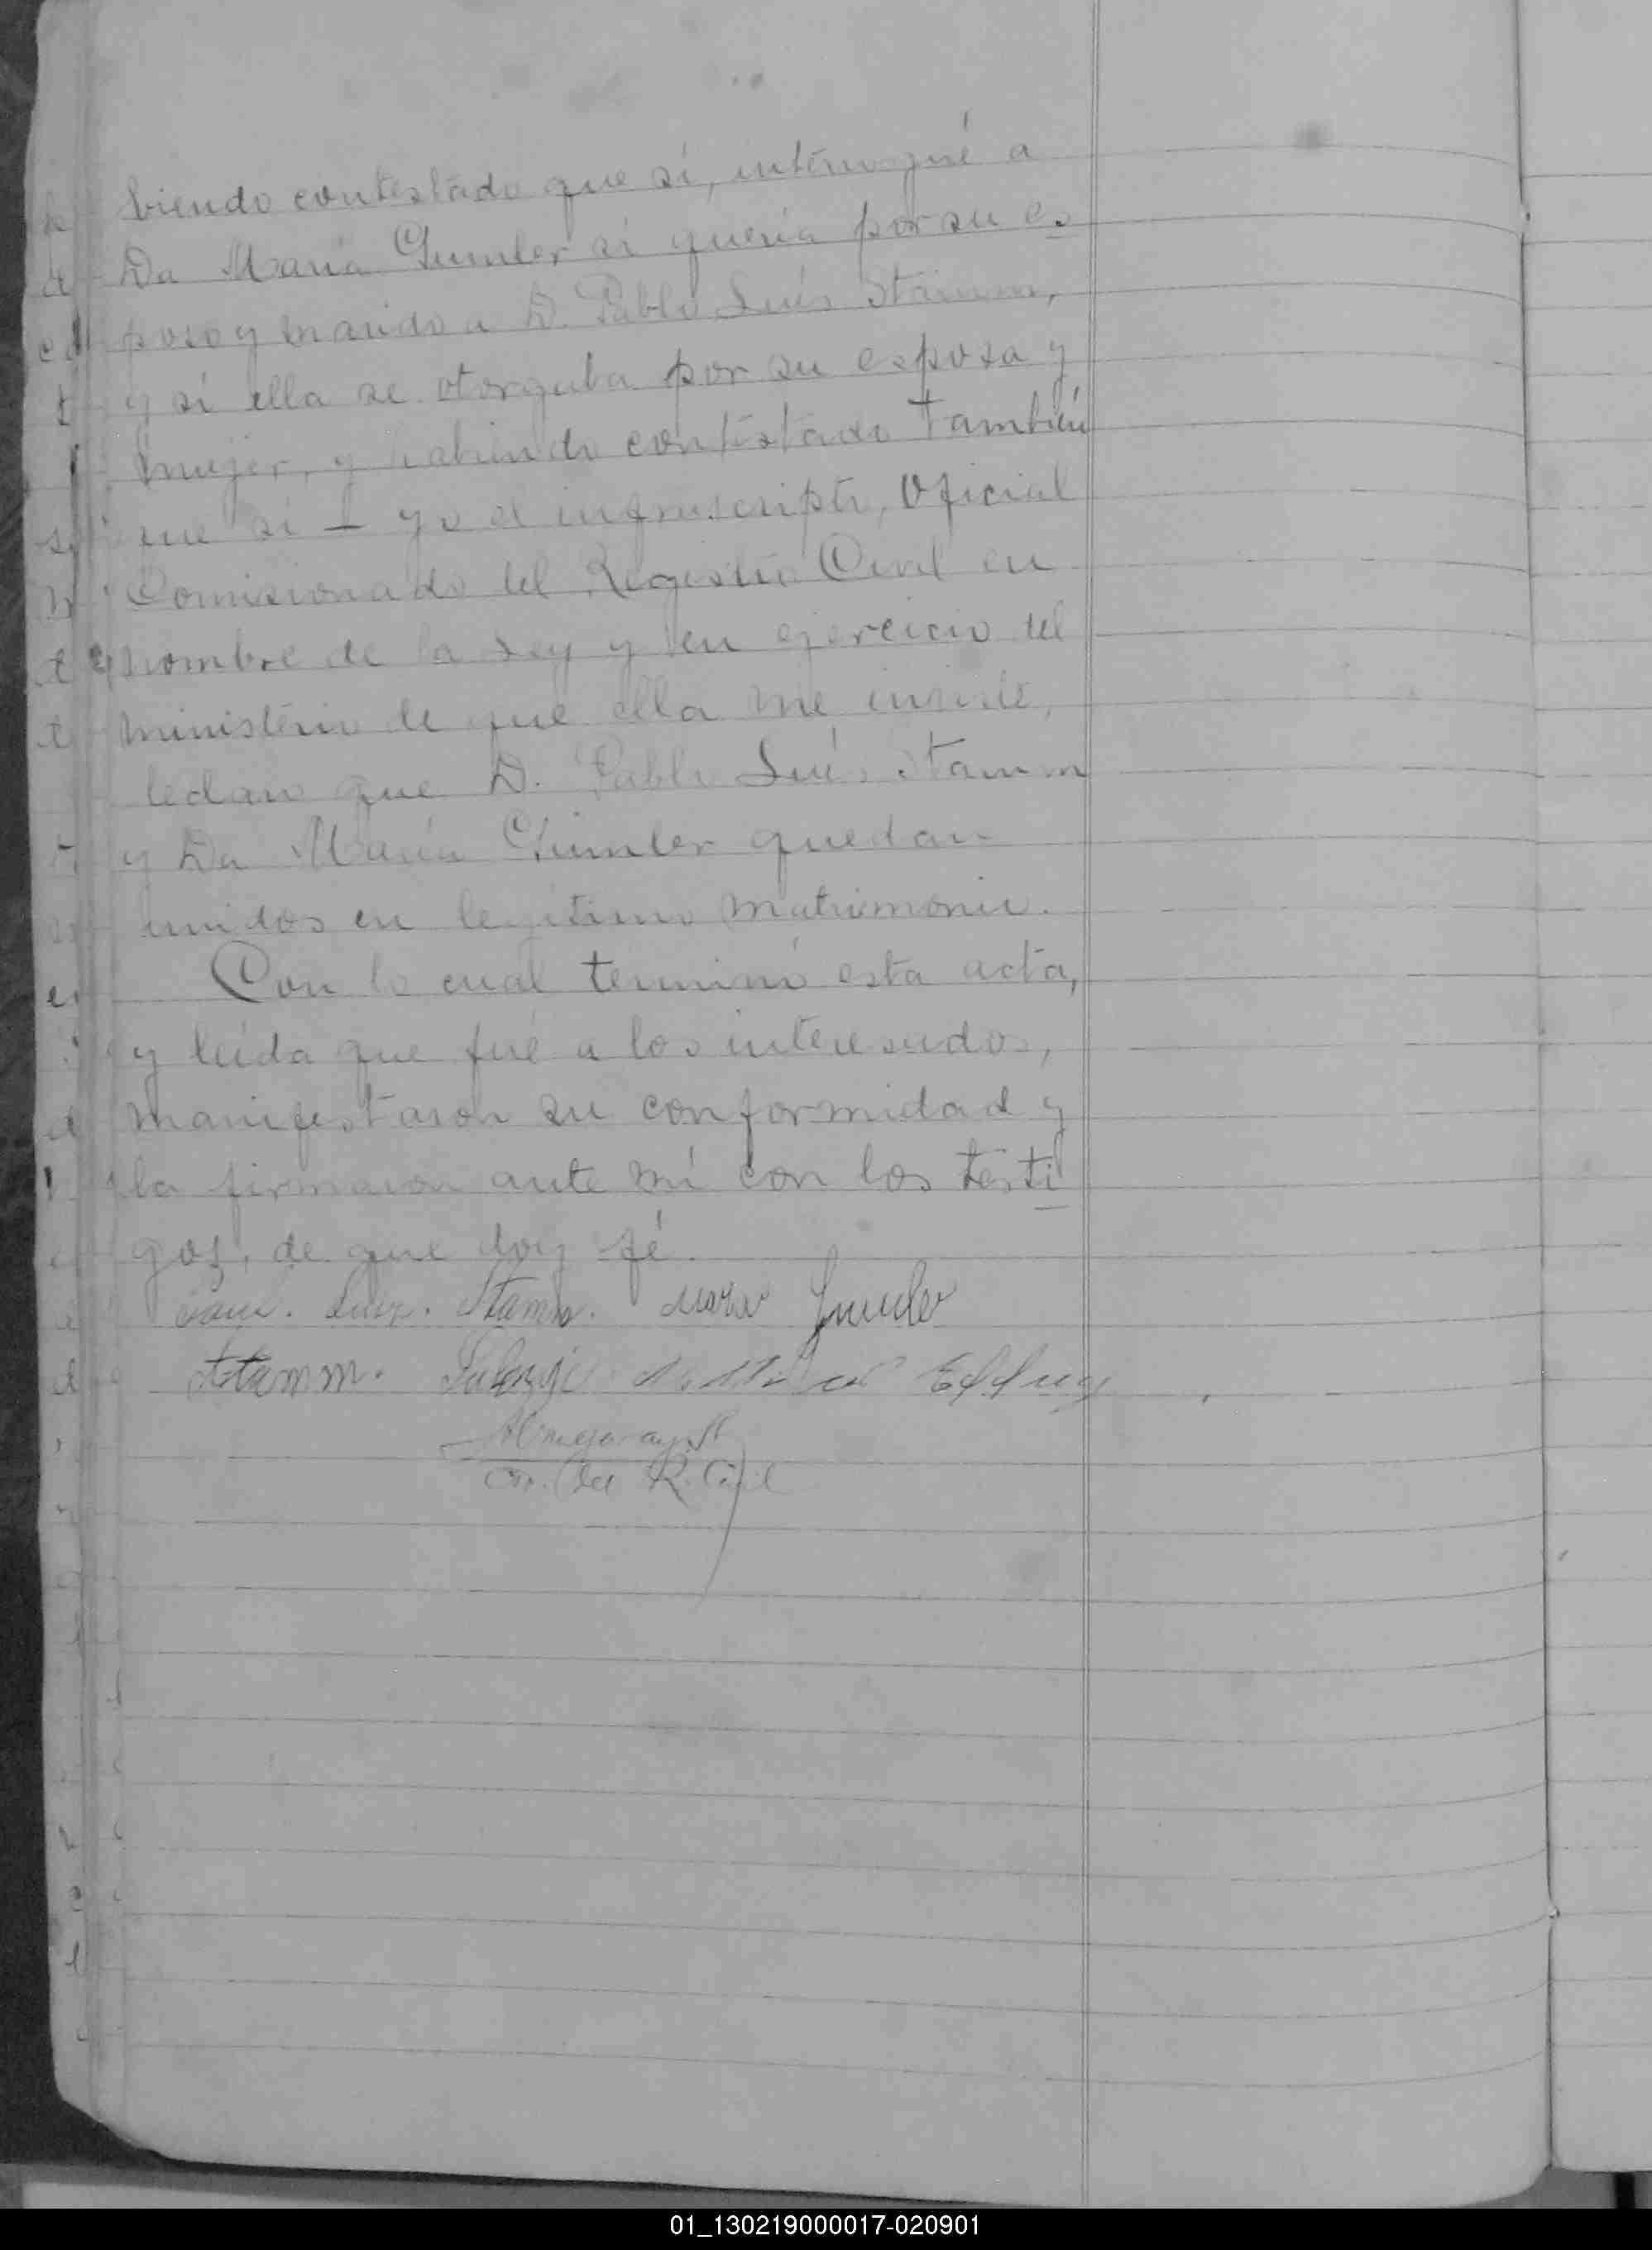 biendo contestado que sí, interrogué a
Da María Gumler si quería por su es
poso y marido a D. Pablo Luís Stamm,
y si ella se otorgaba por su esposa y
mujer, y habiendo contestado también
que si — yo el infrascripto, Oficial
Comisionado del Registro Civil en
nombre de la Ley y en ejercicio del
ministerio de que ella me inviste,
declaro que D. Pablo Luís Stamm
y Da María Gumler quedan
unidos en legitimo matrimonio.
Con lo cual terminó esta acta,
y leída que fué a los interesados,
manifestaron su conformidad y
la firmaron ante mí con los testi
gos, de que doy fé.
Stamm. Gumler
Stamm.
R. Civil
01_130219000017-020901